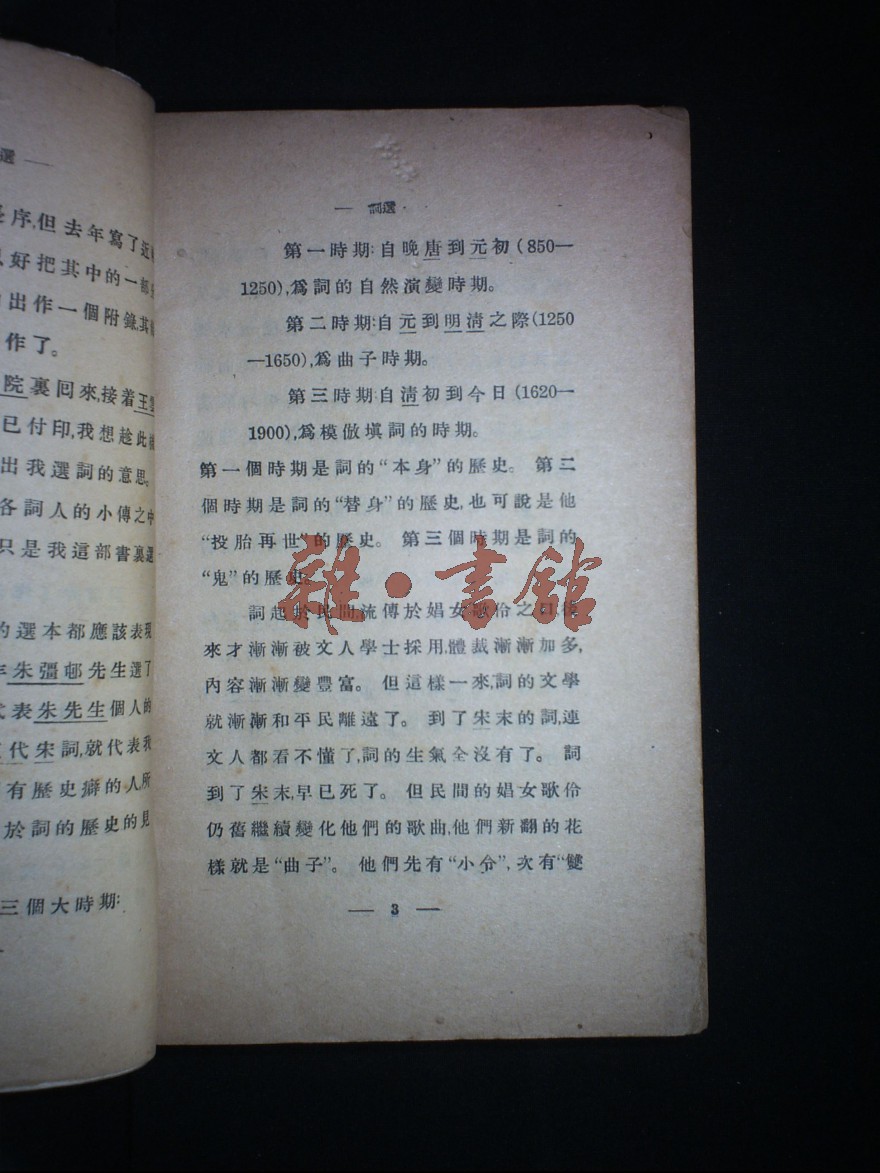 選 —
序,但去年寫了近
好把其中的一部
出作一個附錄,其
作了。
院裏回來,接着王
已付印,我想趁此
出我選詞的意思。
各詞人的小傳之中
只是我這部書裏選
的選本都應該表現
朱彊邨先生選了
代表朱先生個人的
代宋詞,就代表我
有歷史癖的人,所
於詞的歷史的見
三個大時期:
— 詞選 ·
第一時期:自晚唐到元初(850—
1250),爲詞的自然演變時期。
第二時期:自元到明清之際(1250
—1650),爲曲子時期。
第三時期:自清初到今日(1620—
1900),爲模倣塡詞的時期。
第一個時期是詞的“本身”的歷史。 第二
個時期是詞的“替身”的歷史,也可說是他
“投胎再世”的歷史。 第三個時期是詞的
“鬼”的歷史。
詞起於民間,流傳於娼女歌伶之口,後
來才漸漸被文人學士採用,體裁漸漸加多,
內容漸漸變豐富。 但這樣一來,詞的文學
就漸漸和平民離遠了。 到了宋末的詞,連
文人都看不懂了,詞的生氣全沒有了。 詞
到了宋末,早已死了。 但民間的娼女歌伶
仍舊繼續變化他們的歌曲,他們新翻的花
樣就是“曲子”。 他們先有“小令”,次有“雙
— 3 —
雜·書館